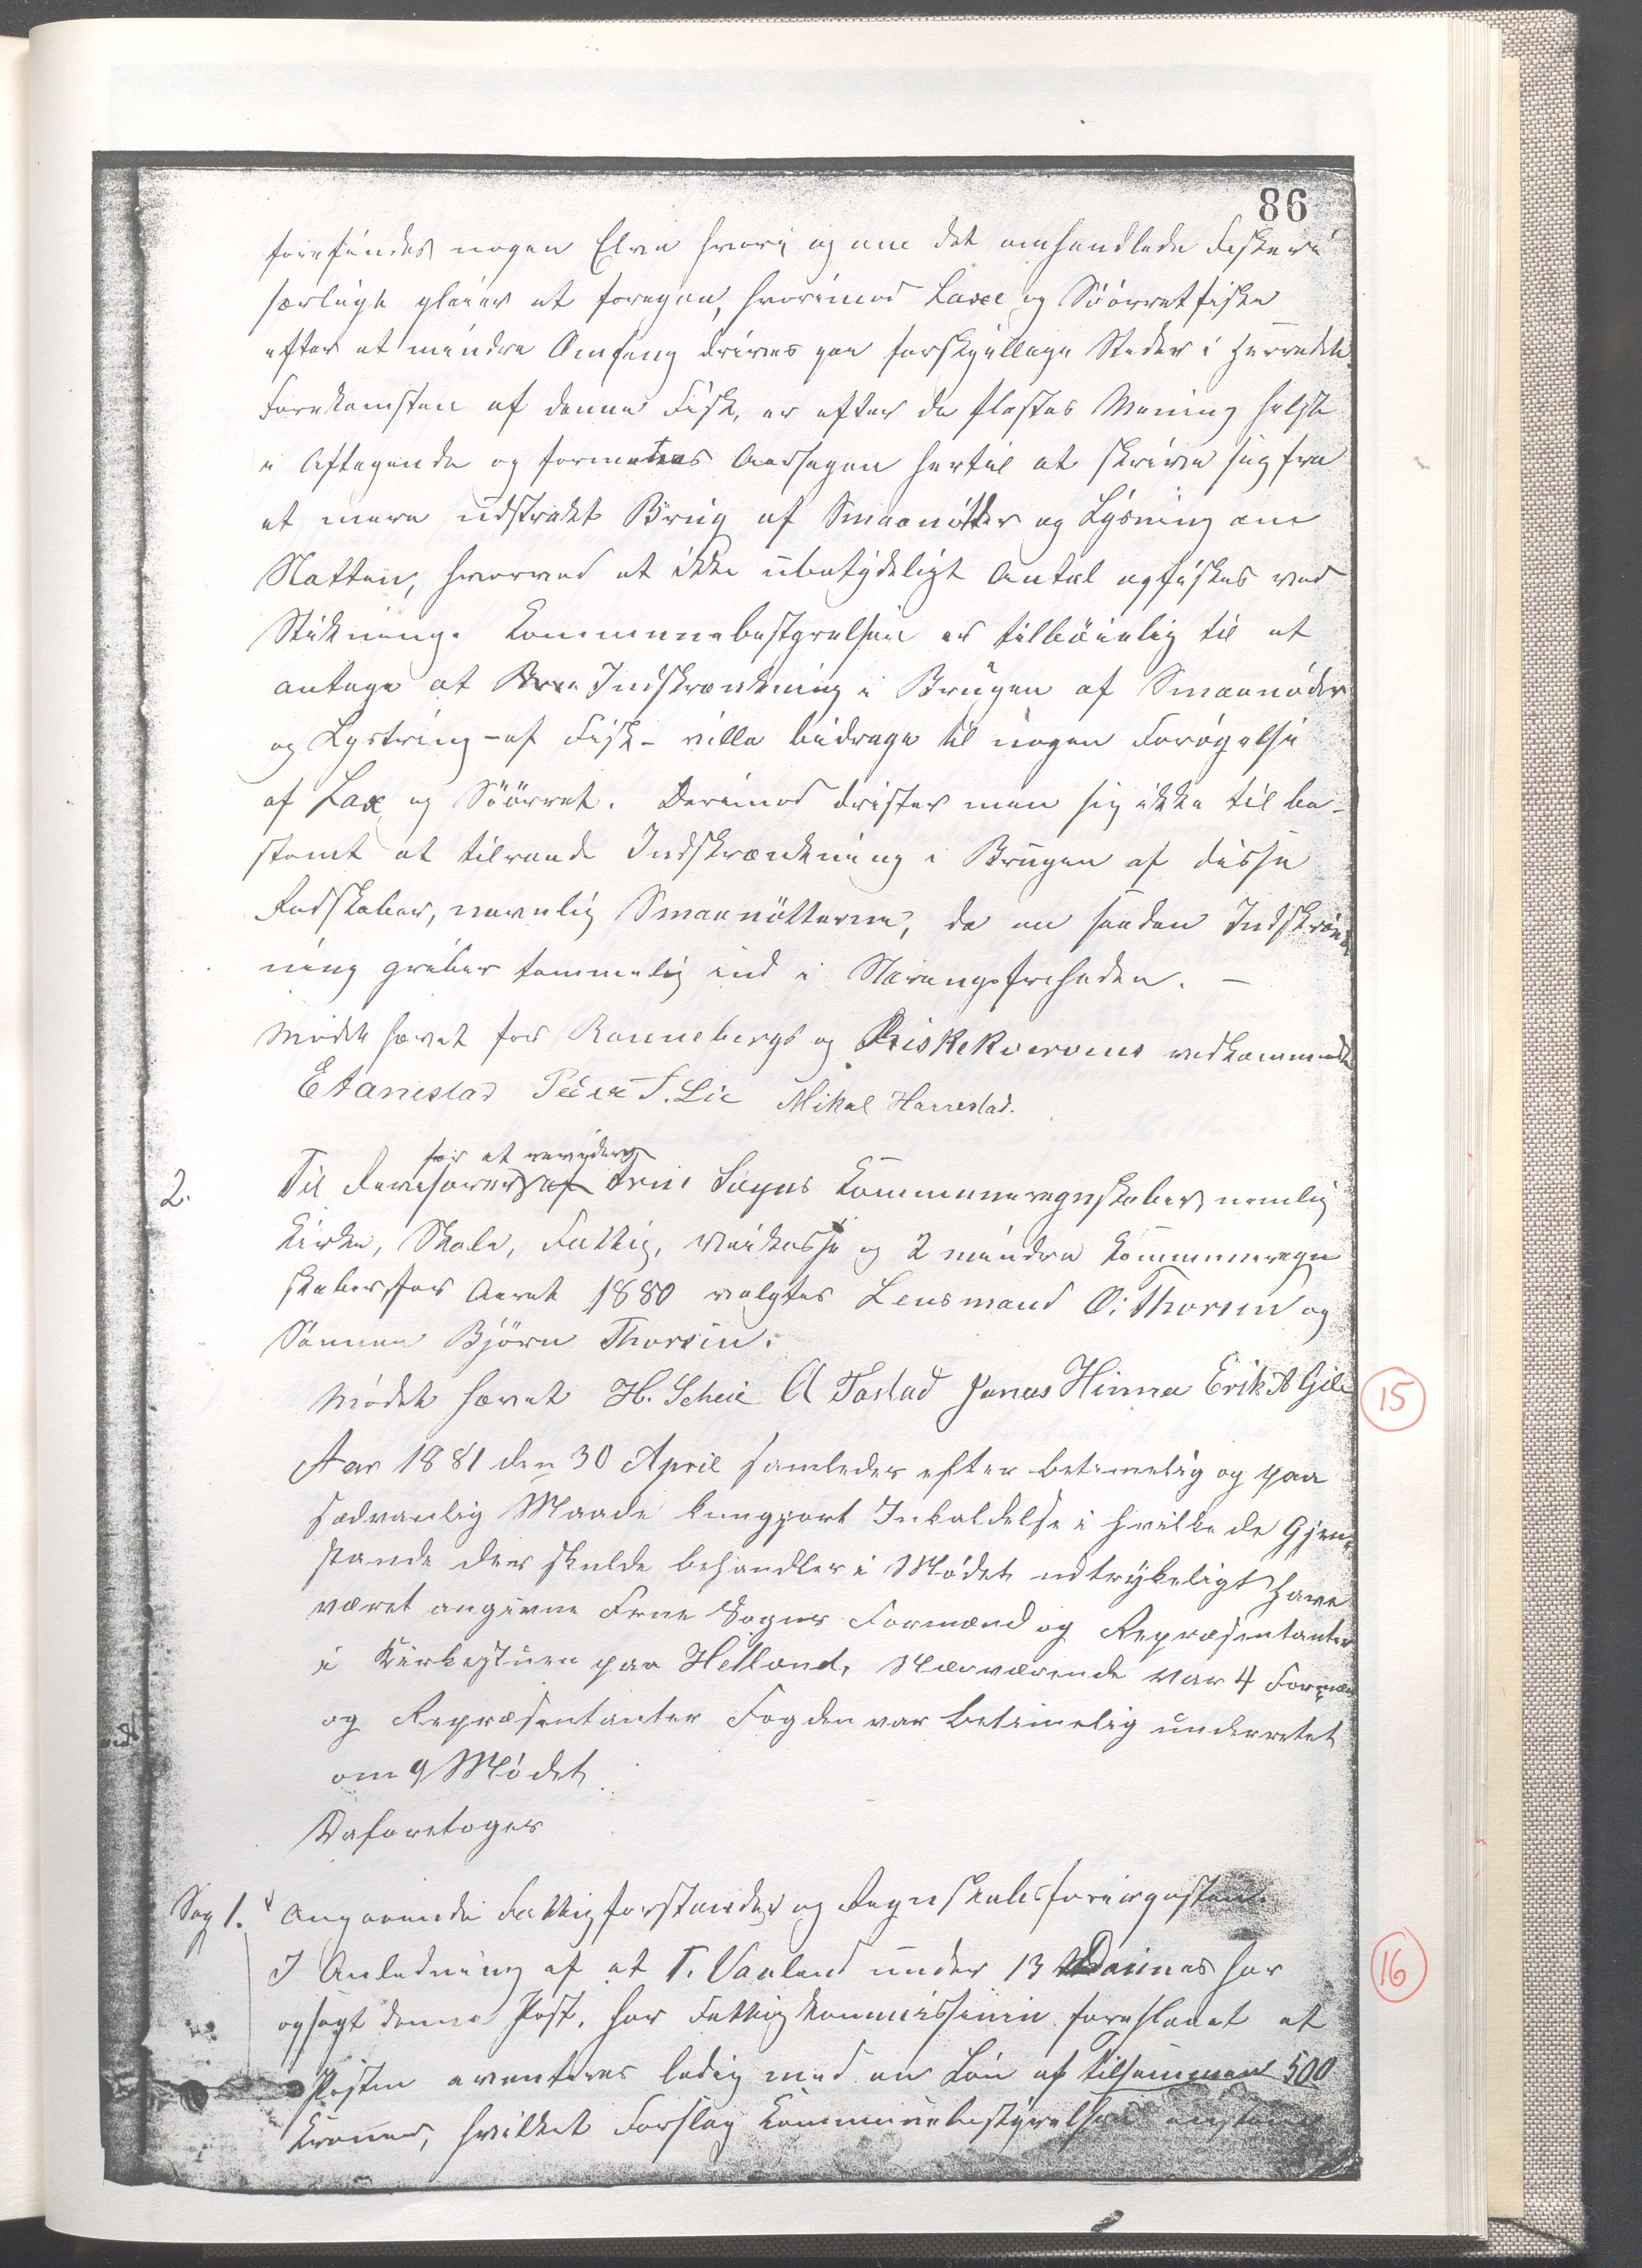 86
forefindes nogen Elve hvori og om det omhandlede Fiskeri
særligt pleier at foregaa, hvorimod Laxe og Söörretfiske
efter et mindre Omfang drives paa forskjellige Steder i Herredet.
Forekomsten af denne Fisk, er efter de flestes Mening helst
i Aftagende og formenes Aarsagen hertil at skrive sig fra
et mere udstrakt Brug af Smaanötter og Lysning om
Natten, hvorved et ikke ubetydeligt Antal opfiskes ved
Stikning. Kommunebestyrelsen er tilböielig til at
antage at Indskrænkning i Brugen af Smaanöder
og Lystring - af Fisk - ville bidrage til nogen Forögelse
af Lax og Söörret. Derimod drister man sig ikke til be-
stemt at tilraade Indskrænkning i Brugen af disse
Redskaber, navnlig Smaanötterne, da en saadan Indskrænk
ning griber temmelig ind i Næringsfriheden. -
Mödet hævet for Rannebergs og vedkommende
E Harrestad Peder T. Lie Mikal Harrestad.
for at revidere
2. Til Revisorer af Frue Sogns Kommuneregnskaber, nemlig
Kirke, Skole, Fattig, Veikasse og 2 mindre Kommuneregn
skaber for Aaret 1880 valgtes Lensmand O. Thorsen og
Sönnen Björn Thorsen.
Mödet hævet H. Scheie A Tastad Jonas Hinna Erik A Gile
15
Aar 1881 den 30 April samledes efter betimelig og paa
sædvanlig Maade kungjort Inkaldelse i hvilke de Gjen-
stande der skulde behandles i Mødet udtrykeligt have
været angivne Frue Sogns Formænd og Repræsentanter
i Kirkestuen paa Hetland. Nærværende var 4 Formænd
og Repræsentanter Fogden var betimelig underretet
om Mødet
Da foretoges
Sag 1. Angaaende Fattigforstander og Regnskabsförerposten.
I Anledning af at T. Vaaland under 13 har
opsagt denne Post, har Fattigkommissionen foreslaaet at
16
Posten averteres ledig med en Lön af tilsammen 500
Kroner, hvilket Forslag Kommunebestyrelsen